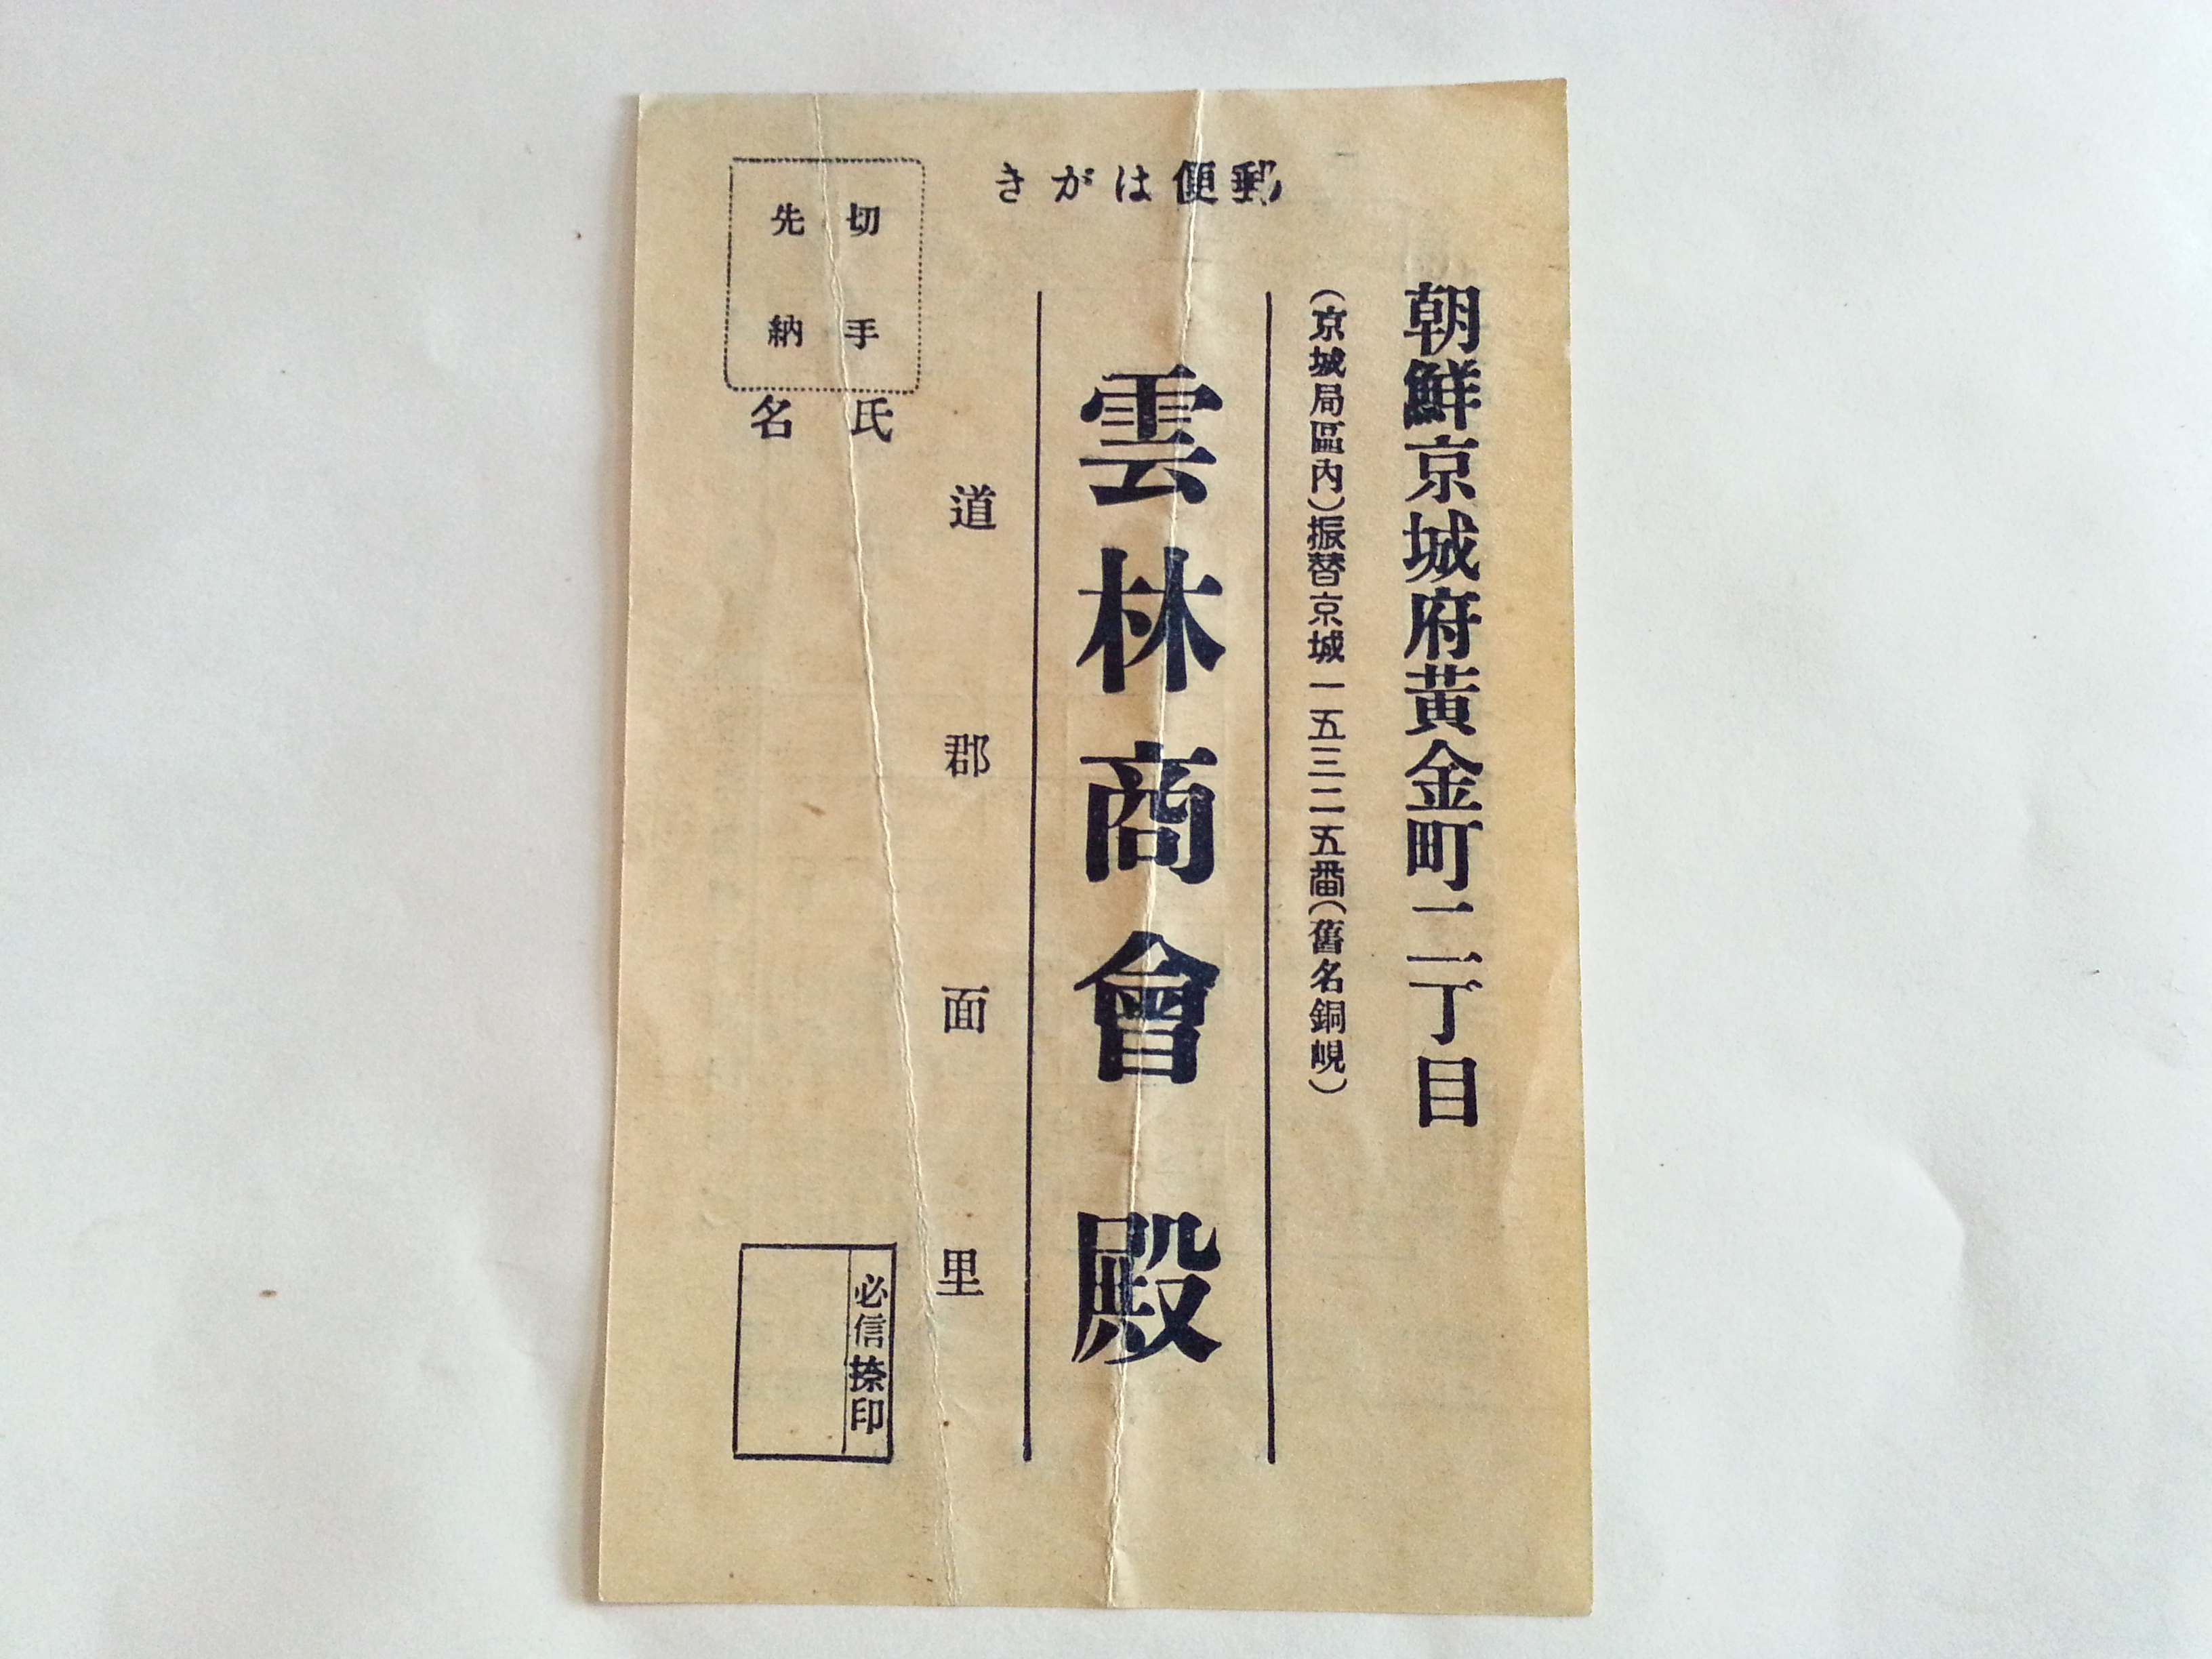 郵便はがき
朝鮮京城府黄金町二丁目
(京城局區內)振替京城一五三二五番(舊名銅峴)
雲林商會殿
道 郡 面 里
切手
先納
氏名
必信捺印